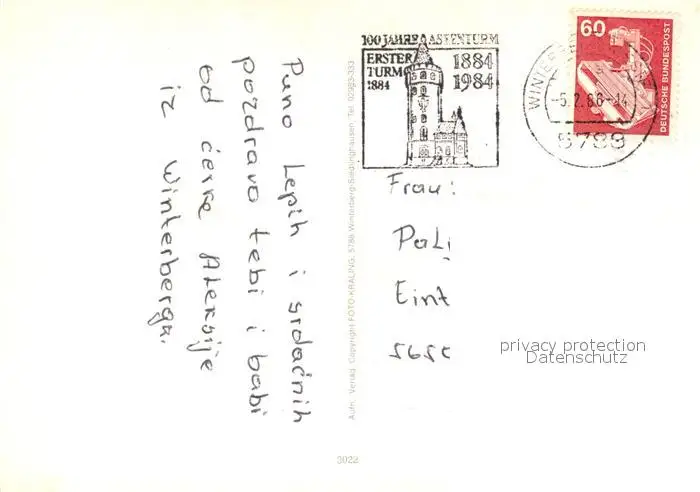 Puno Lepih i srdačnih
pozdravo tebi i babi
od ćerke Aleksije
iz Winterberga.
Aufn. Verlag Copyright FOTO-KRALING, 5788 Winterberg-Siedlinghausen, Tel. 02983-333
3022
100 JAHRE ASTENTURM
ERSTER
TURM
1884
1884
1984
60
DEUTSCHE BUNDESPOST
-5.2.86-14
5788
Frau:
privacy protection
Datenschutz